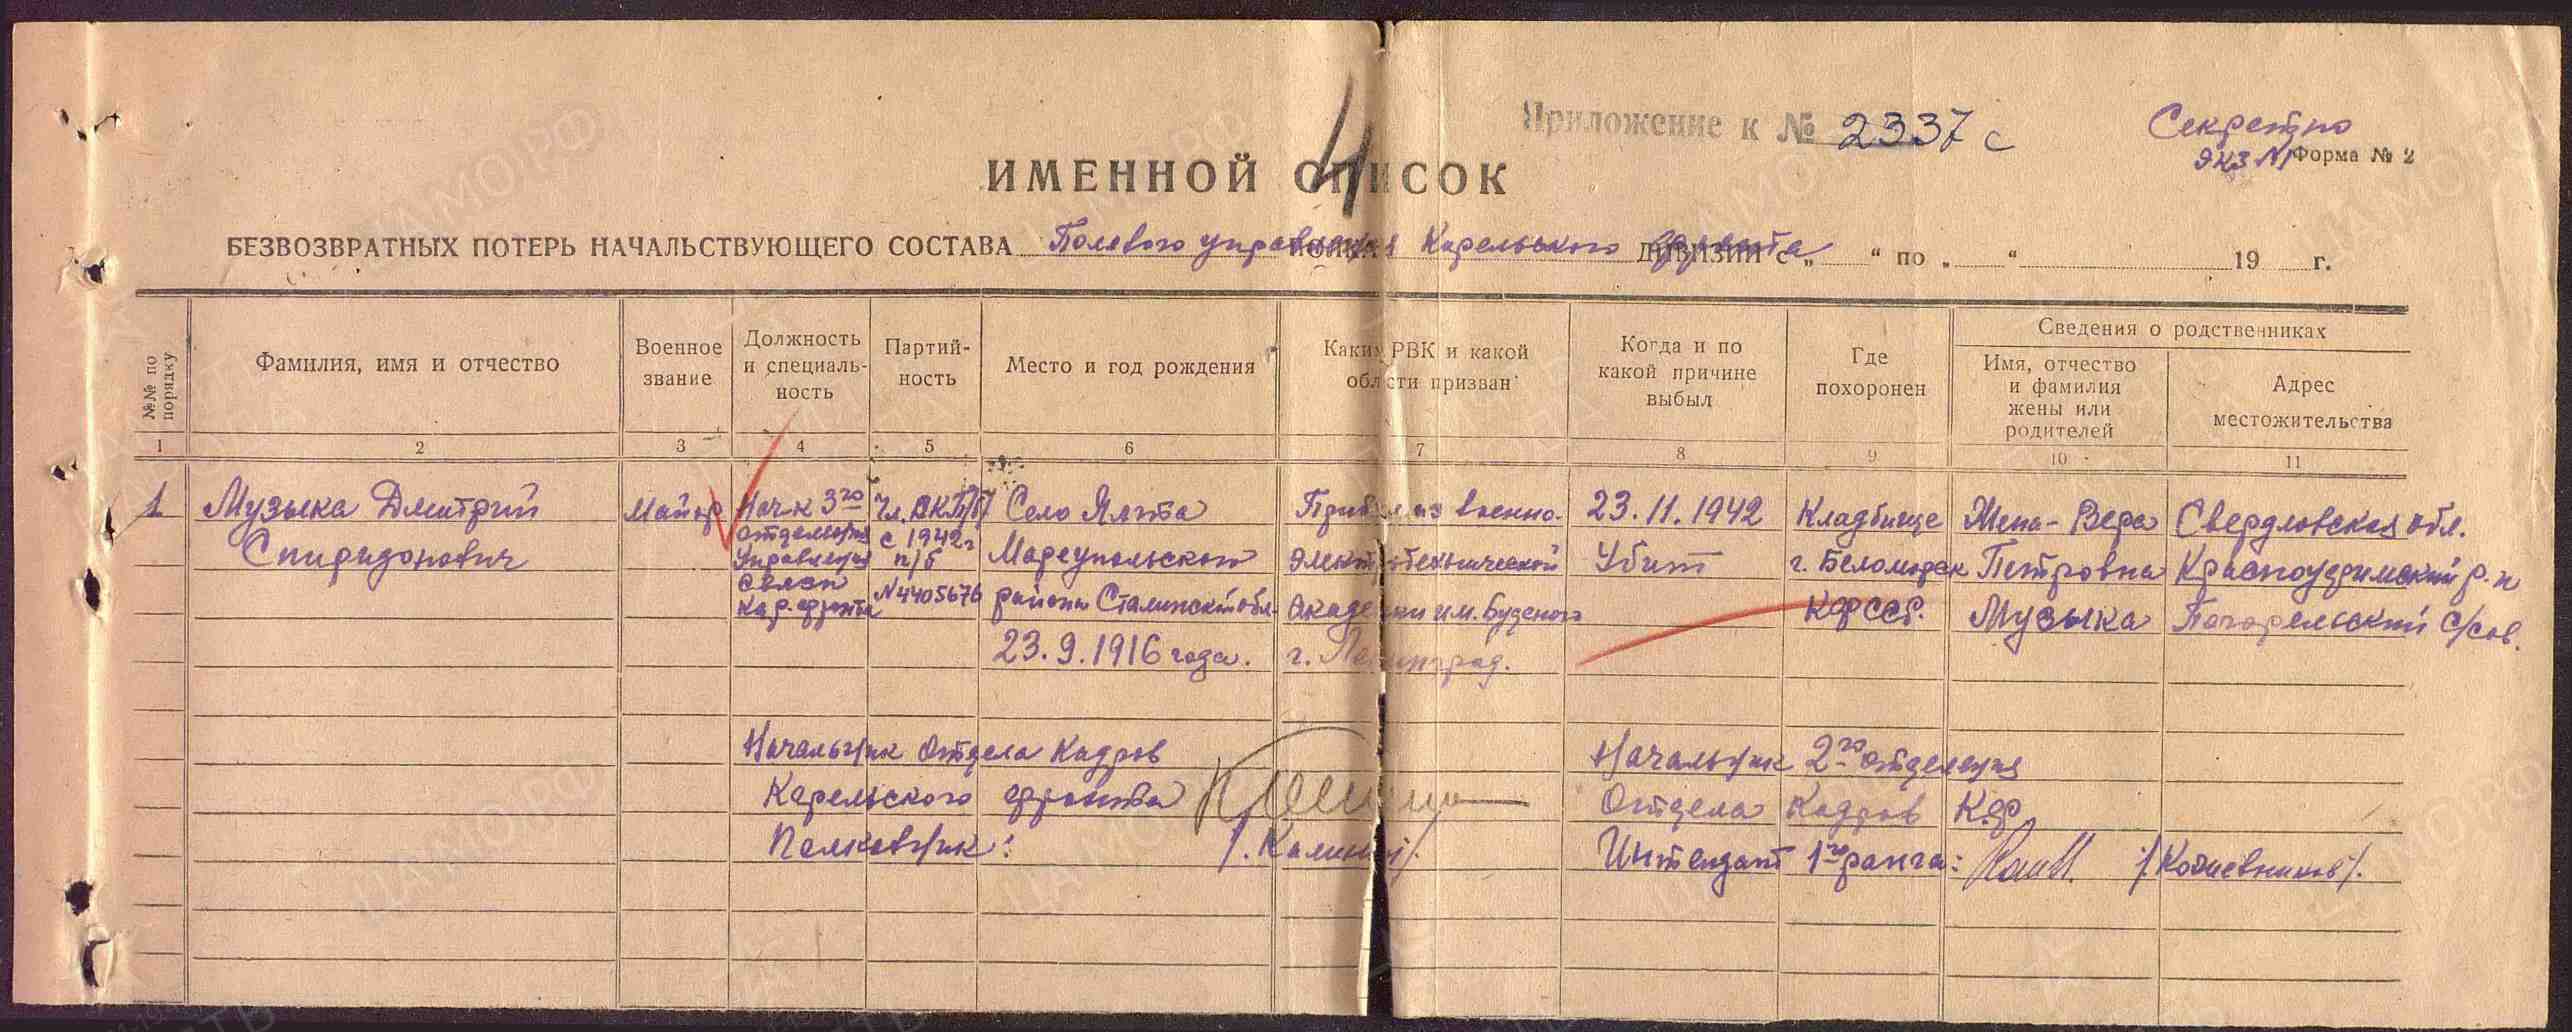 Приложение к № 2337 с
Секретно
экз №1 Форма № 2
4
ИМЕННОЙ СПИСОК
БЕЗВОЗВРАТНЫХ ПОТЕРЬ НАЧАЛЬСТВУЮЩЕГО СОСТАВА Полевого управления Карельского фронта ДИВИЗИИ с „ “ по „ “ 19 г.
№№ по порядку
Фамилия, имя и отчество
Военное
звание
Должность
и специаль-
ность
Партий-
ность
Место и год рождения
Каким РВК и какой
области призван
Когда и по
какой причине
выбыл
Где
похоронен
Сведения о родственниках
Имя, отчество
и фамилия
жены или
родителей
Адрес
местожительства
1 2 3 4 5 6 7 8 9 10 11
1
Музыка Дмитрий
Спиридонович
Майор
Нач-к 3го
отделения
Управления
связи
Кар. фронта
Чл. ВКП/б/
с 1942г
п/б
№4405676
Село Ялта
Мареупольского
района Сталинской обл.
23.9.1916 года.
Прибыл из военно-
электротехнической
Академии им. Буденого
г. Ленинград.
23.11.1942
Убит
Кладбище
г. Беломорск
КФССР.
Жена - Вера
Петровна
Музыка
Свердловская обл.
Красноуфимский р-н
с/сов.
Начальник Отдела Кадров
Карельского фронта
Полковник:
/. Калинин/.
Начальник 2го отделения
Отдела Кадров КФ
Интендант 1го ранга:
/Кожевников/.
ЦАМО.РФ